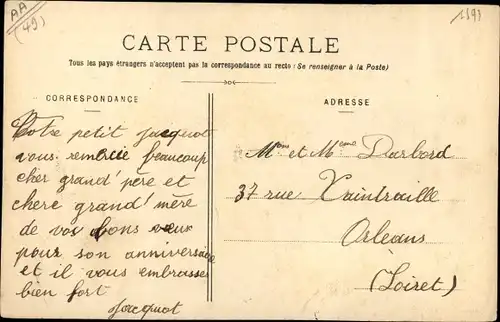 AA
(49)
1593
CARTE POSTALE
Tous les pays étrangers n'acceptent pas la correspondance au recto (Se renseigner à la Poste)
CORRESPONDANCE
Votre petit Jacquot
vous remercie beaucoup
cher grand' père et
chere grand' mère
de vos bons vœux
pour son anniversaire
et il vous embrasse
bien fort
Jacquot
ADRESSE
Mons et Mme Darbord
37 rue Xaintraille
Orléans
(Loiret)